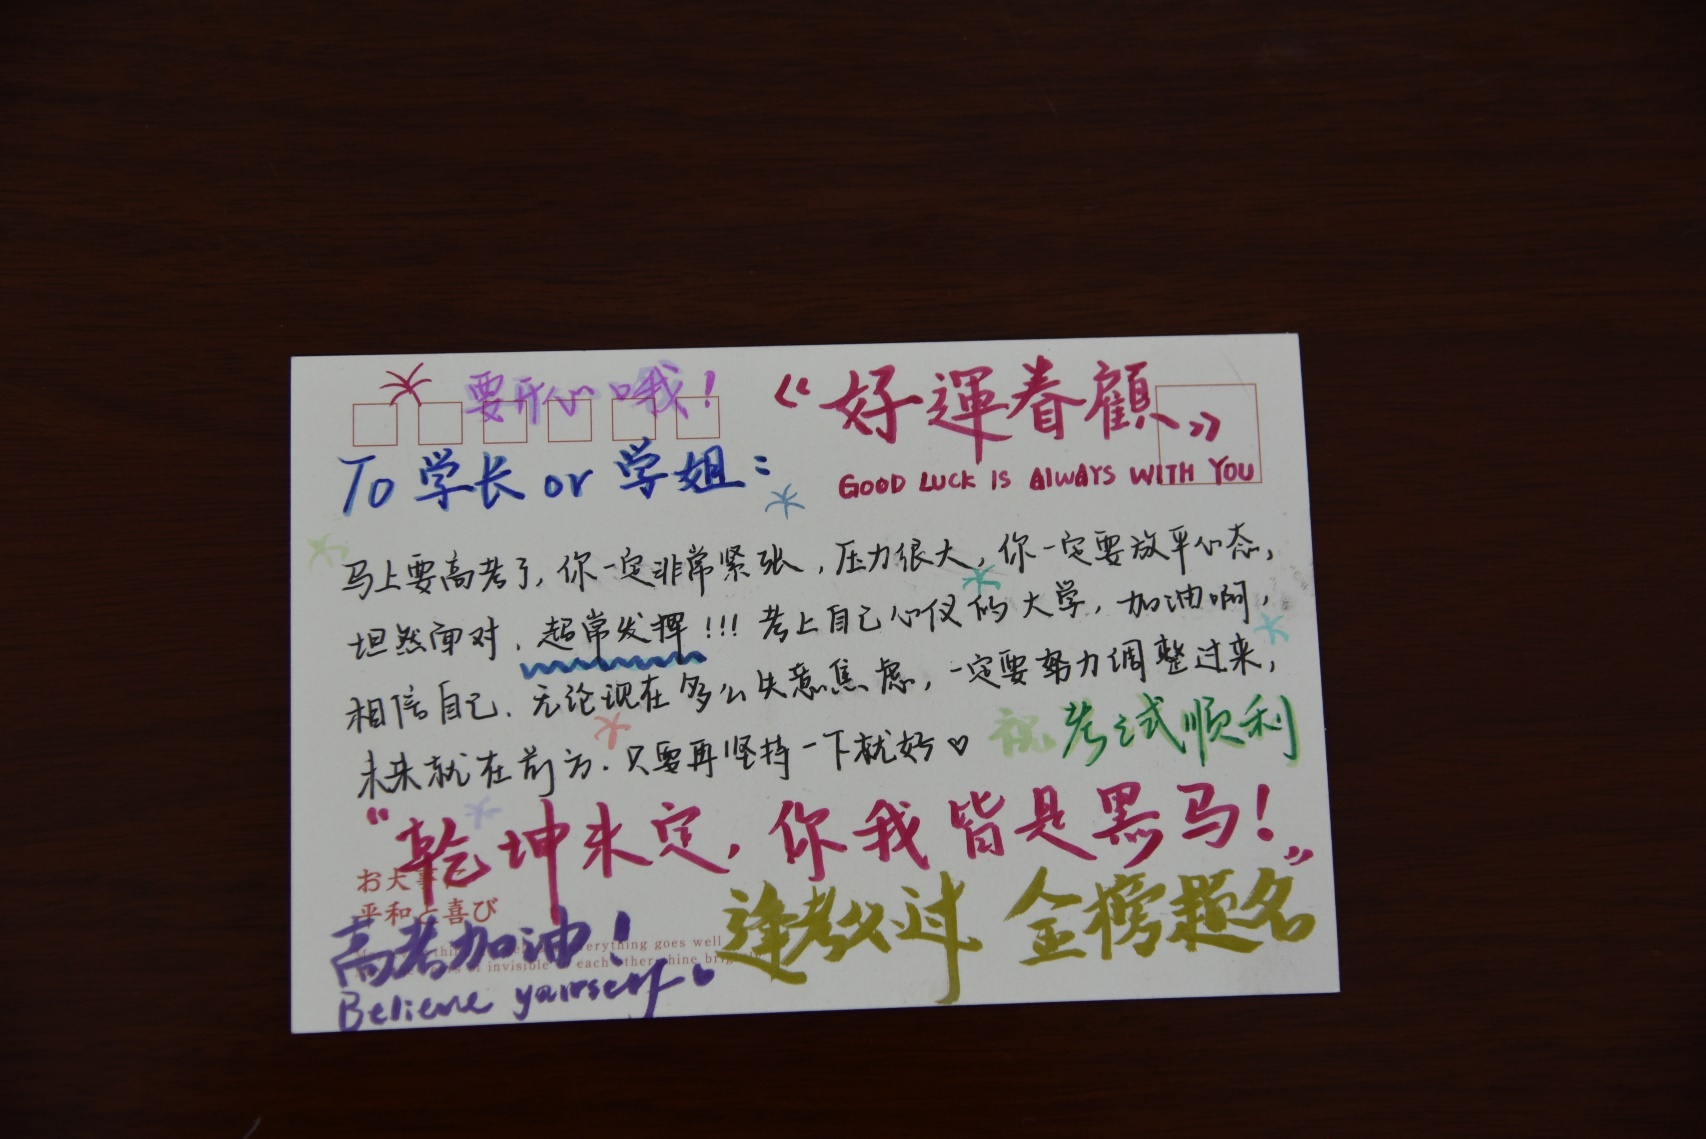 要开心哦！
《好運眷顧》
GOOD LUCK IS ALWAYS WITH YOU
To 学长 or 学姐：
马上要高考了，你一定非常紧张，压力很大，你一定要放平心态，
坦然面对，超常发挥！！！考上自己心仪的大学，加油啊，
相信自己，无论现在多么失意焦虑，一定要努力调整过来，
未来就在前方，只要再坚持一下就好♡
祝考试顺利
“乾坤未定，你我皆是黑马！”
お大事に
平和と喜び
高考加油！
逢考必过 金榜题名
erything goes well
of invisible
each other shine
Believe yourself